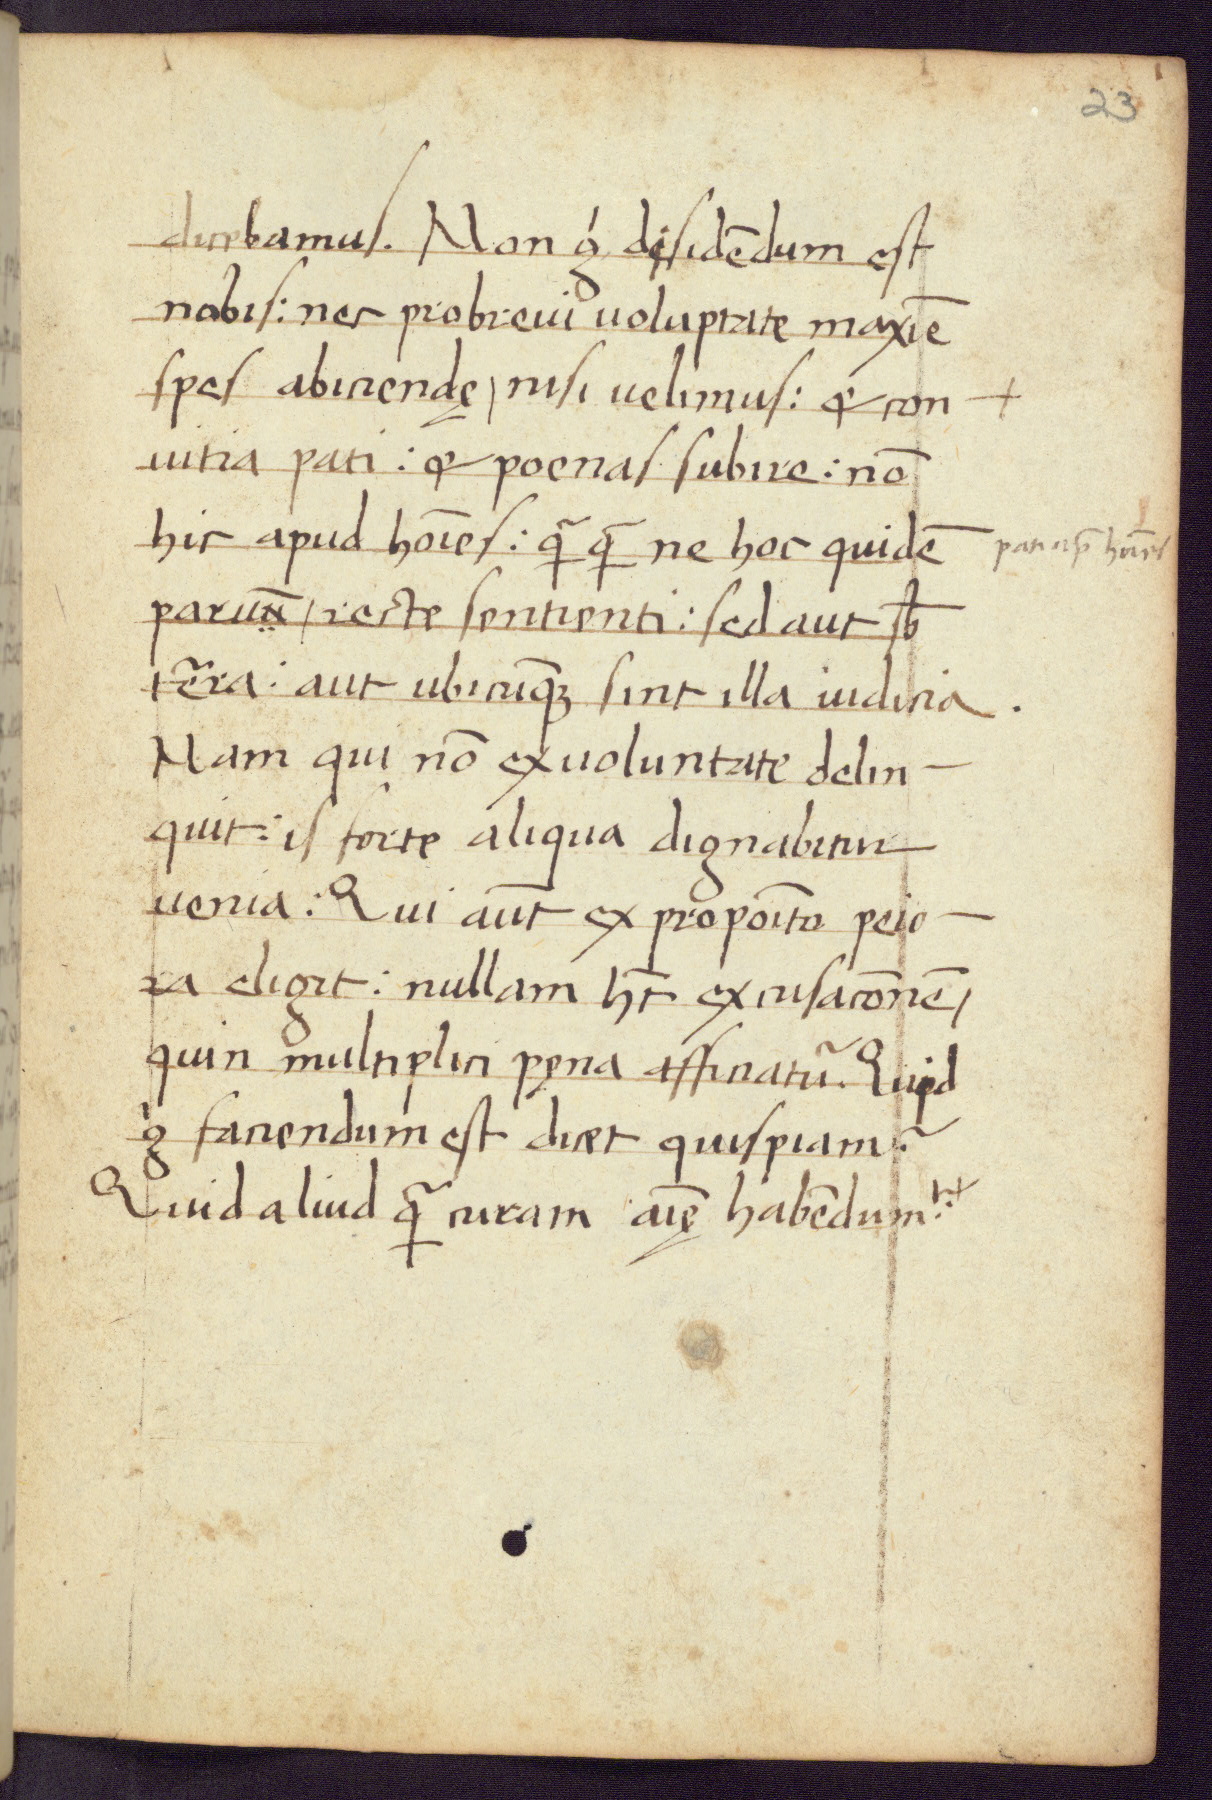 23
dicebamus. Non g̍ desidēdum est
nobis: nec pro breui uoluptate maxīe
spes abiciendę, nisi uelimus: & con-
uitia pati: & poenas subire: nō
hic apud hoīes: q̄ q̄ ne hoc quidē
paruū, recte sentienti: sed aut sƀ
tēra: aut ubicūqꝫ sint illa iudicia.
Nam qui nō ex uoluntate delin-
quit: is forte aliqua dignabitur
uenia: Qui aūt ex propoīto peio-
ra eligit: nullam ht̄ excusacōnē,
quin multiplici pęna afficiatur̃. Quid
g̍ faciendum est dicet quispiam?
Quid aliud q̄ curam aīę habēdum?